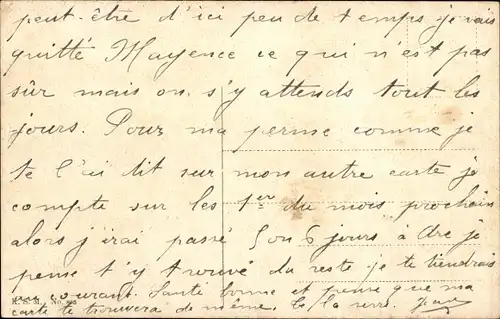 peut-être d'ici peu de temps je vais
quitté Mayence ce qui n'est pas
sûr mais on s'y attends tout les
jours. Pour ma perme comme je
te l'ai dit sur mon autre carte je
compte sur les 1er du mois prochain
alors j'irai passé 5 ou 6 jours à je
pense t'y trouvé du reste je te tiendrais
au courant. Santé bonne et pense que ma
carte te trouvera de même. la serre. Jean